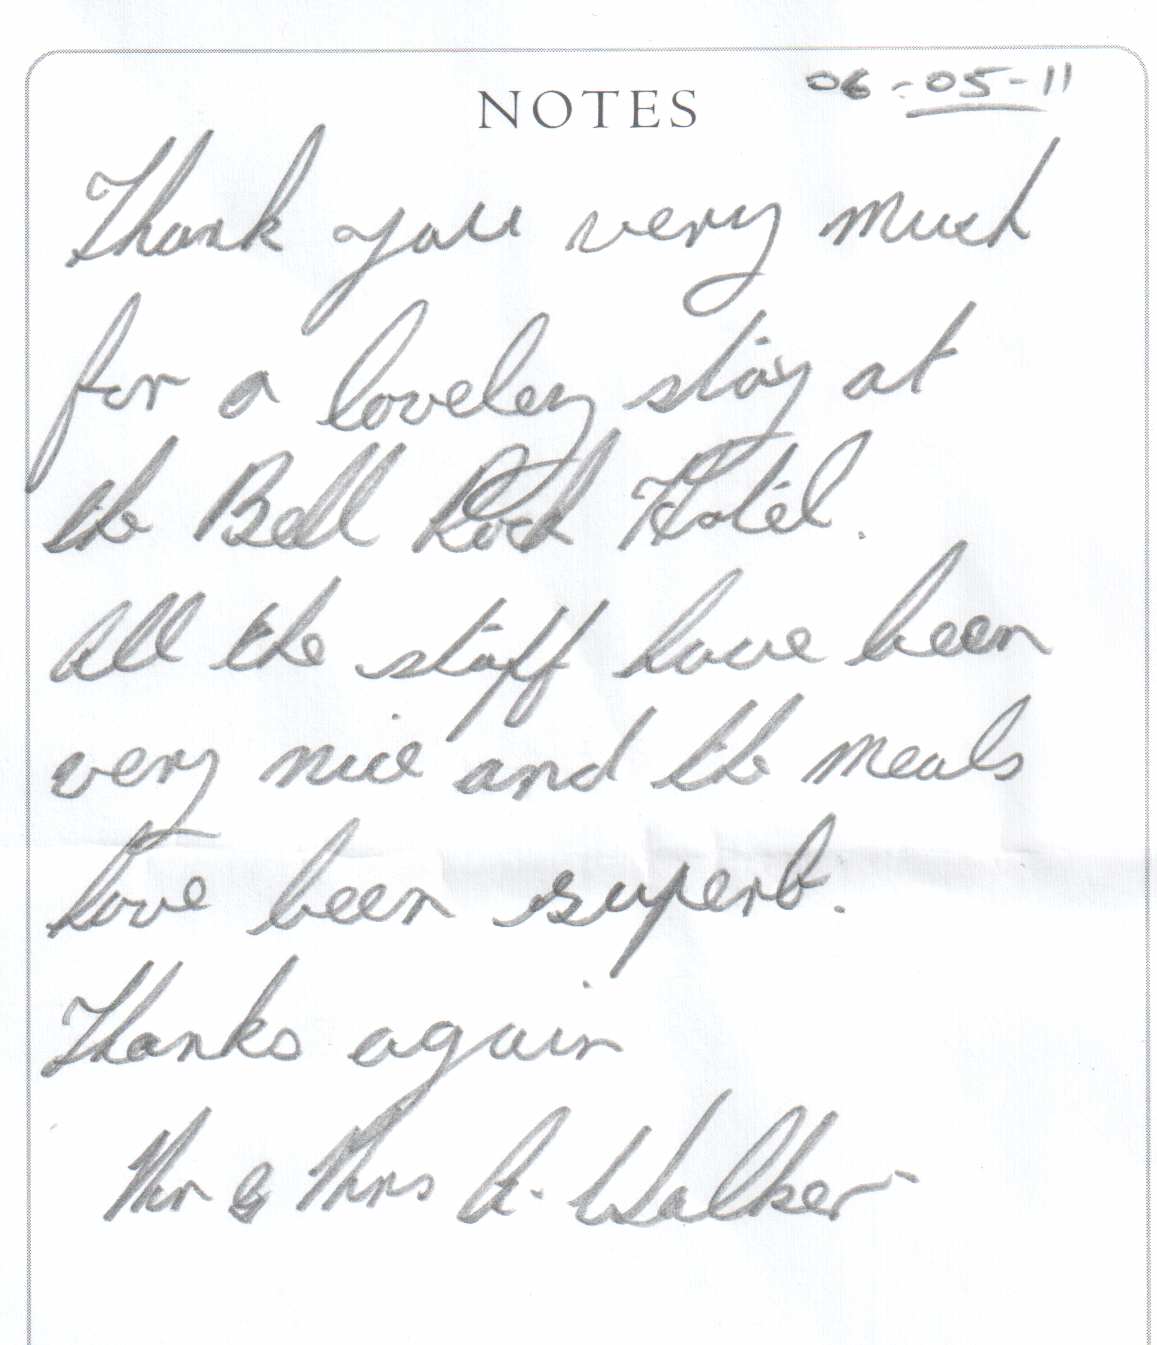 NOTES 06-05-11
Thank you very much
for a loveley stay at
the Bell Rock Hotel.
All the staff have been
very nice and the meals
have been superb.
Thanks again
Mr & Mrs A. Walker